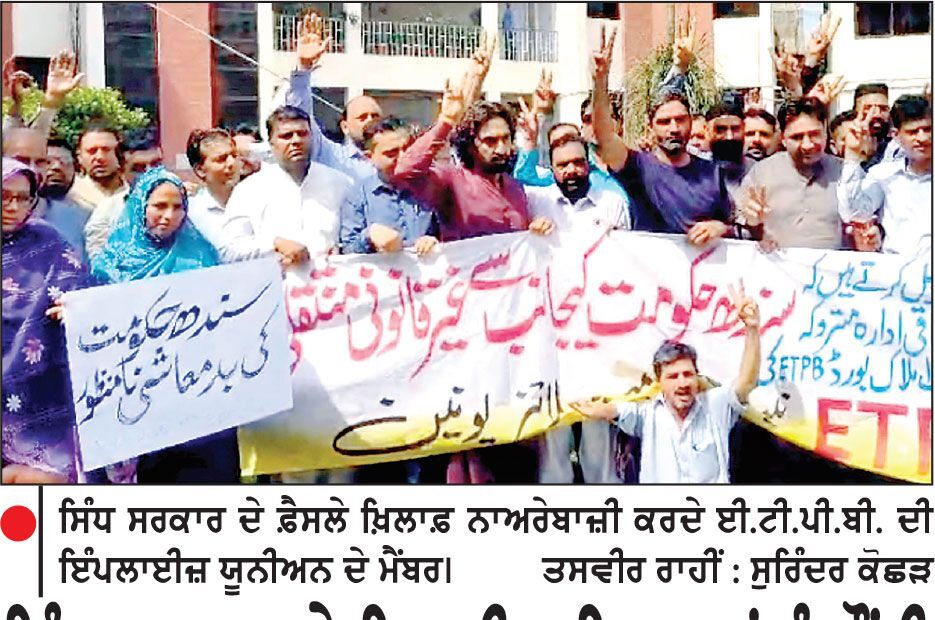 سندھ حکومت
کی بدمعاشی نامنظور
سندھ حکومت کیجانب سے غیر قانونی منتقلی
کرتے ہیں کہ
ادارہ متروکہ
املاک بورڈ ETPB کی
یونین
ET
ਸਿੰਧ ਸਰਕਾਰ ਦੇ ਫ਼ੈਸਲੇ ਖ਼ਿਲਾਫ਼ ਨਾਅਰੇਬਾਜ਼ੀ ਕਰਦੇ ਈ.ਟੀ.ਪੀ.ਬੀ. ਦੀ
ਇੰਪਲਾਈਜ਼ ਯੂਨੀਅਨ ਦੇ ਮੈਂਬਰ। ਤਸਵੀਰ ਰਾਹੀਂ : ਸੁਰਿੰਦਰ ਕੋਛੜ